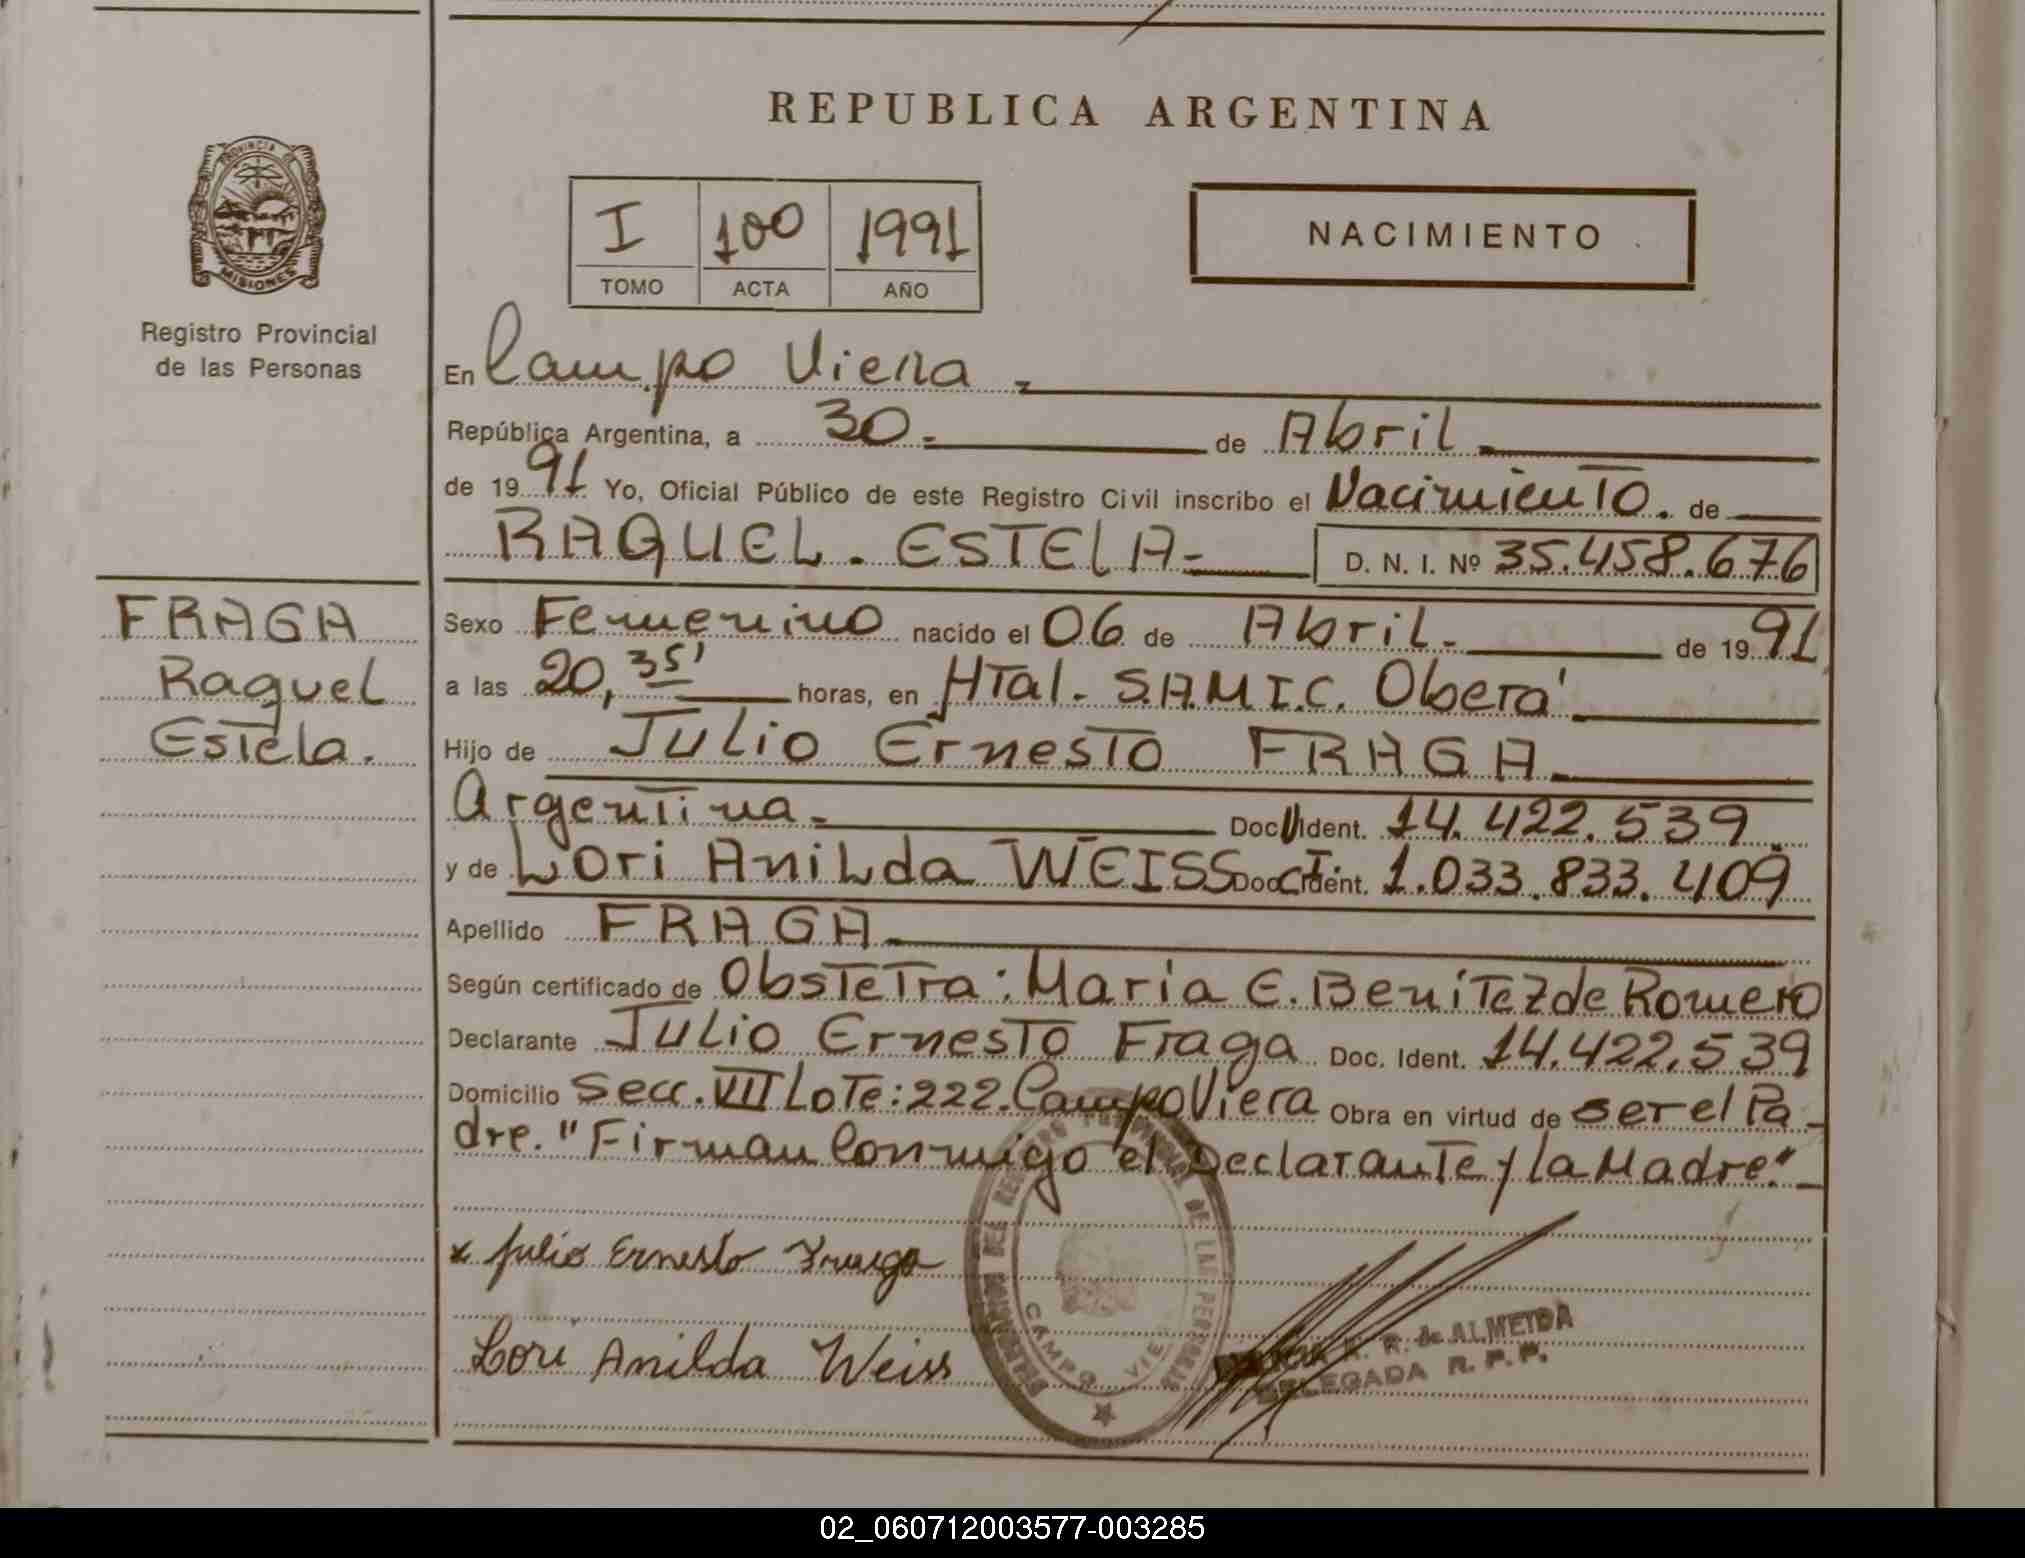 REPUBLICA ARGENTINA
PROVINCIA DE
MISIONES
Registro Provincial
de las Personas
I 100 1991
TOMO ACTA AÑO
NACIMIENTO
En Campo Viera
República Argentina, a 30 de Abril
de 1991 Yo, Oficial Público de este Registro Civil inscribo el Nacimiento. de
RAQUEL. ESTELA D. N. I. Nº 35.458.676
FRAGA
Raquel
Estela.
Sexo Femenino nacido el 06 de Abril. de 1991
a las 20,35' horas, en Htal. S.A.M.I.C. Oberá
Hijo de Julio Ernesto FRAGA
Argentina. Doc. Ident. 14.422.539
y de Lori Anilda WEISS Doc. Ident. 1.033.833.409
Apellido FRAGA
Según certificado de Obstetra: Maria E. Benitez de Romero
Declarante Julio Ernesto Fraga Doc. Ident. 14.422.539
Domicilio Secc. VIII Lote: 222. Campo Viera Obra en virtud de ser el Pa-
dre. "Firman Conmigo el Declarante y la Madre."
x Julio Ernesto Fraga
Lori Anilda Weiss
REGISTRO PROVINCIAL DE LAS PERSONAS
CAMPO VIE
R. de ALMEIDA
DELEGADA R. P. P.
02_060712003577-003285